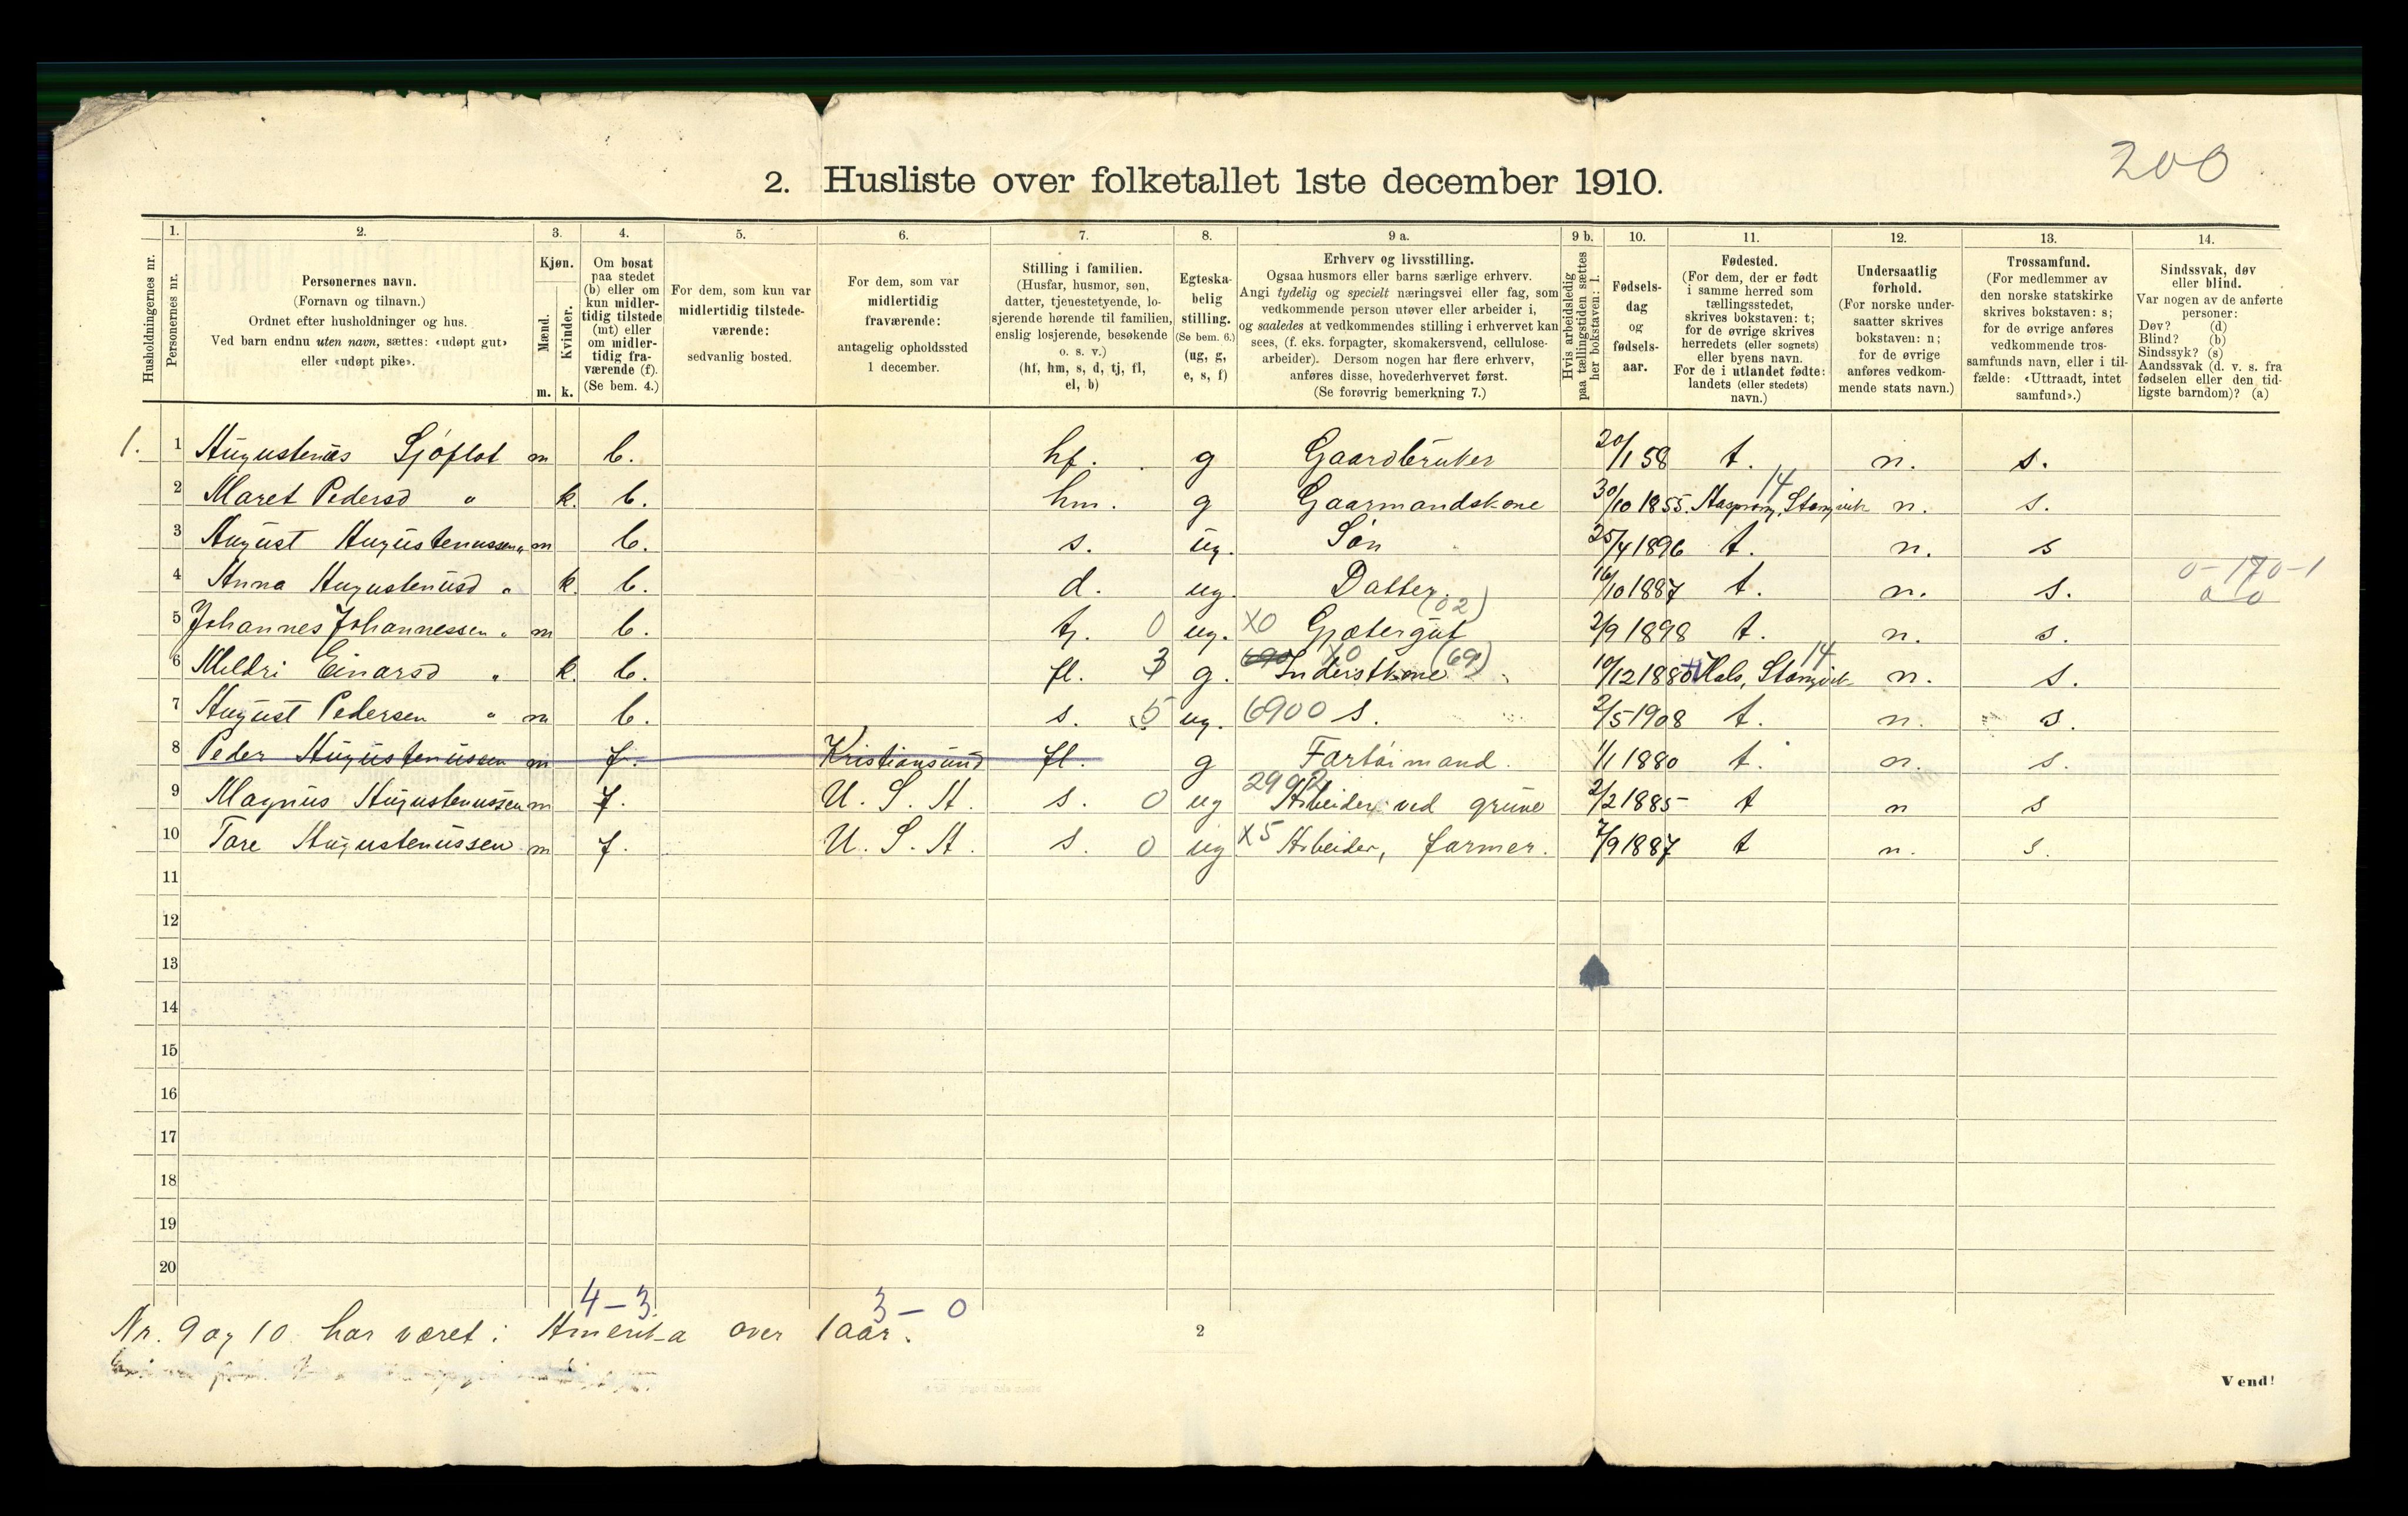 200
2. Husliste over folketallet 1ste december 1910.
Husholdningernes nr.
1.
Personernes nr.
2.
Personernes navn.
(Fornavn og tilnavn.)
Ordnet efter husholdninger og hus.
Ved barn endnu uten navn, sættes: «udøpt gut»
eller «udøpt pike».
3.
Kjøn.
Mænd.
m.
Kvinder.
k.
4.
Om bosat
paa stedet
(b) eller om
kun midler-
tidig tilstede
(mt) eller
om midler-
tidig fra-
værende (f).
(Se bem. 4.)
5.
For dem, som kun var
midlertidig tilstede-
værende:
sedvanlig bosted.
6.
For dem, som var
midlertidig
fraværende:
antagelig opholdssted
1 december.
7.
Stilling i familien.
(Husfar, husmor, søn,
datter, tjenestetyende, lo-
sjerende hørende til familien,
enslig losjerende, besøkende
o. s. v.)
(hf, hm, s, d, tj, fl,
el, b)
8.
Egteska-
belig
stilling.
(Se bem. 6.)
(ug, g,
e, s, f)
9 a.
Erhverv og livsstilling.
Ogsaa husmors eller barns særlige erhverv.
Angi tydelig og specielt næringsvei eller fag, som
vedkommende person utøver eller arbeider i,
og saaledes at vedkommendes stilling i erhvervet kan
sees, (f. eks. forpagter, skomakersvend, cellulose-
arbeider). Dersom nogen har flere erhverv,
anføres disse, hovederhvervet først.
(Se forøvrig bemerkning 7.)
9 b.
Hvis arbeidsledig
paa tællingstiden sættes
her bokstaven: l.
10.
Fødsels-
dag
og
fødsels-
aar.
11.
Fødested.
(For dem, der er født
i samme herred som
tællingsstedet,
skrives bokstaven: t;
for de øvrige skrives
herredets (eller sognets)
eller byens navn.
For de i utlandet fødte:
landets (eller stedets)
navn.)
12.
Undersaatlig
forhold.
(For norske under-
saatter skrives
bokstaven: n;
for de øvrige
anføres vedkom-
mende stats navn.)
13.
Trossamfund.
(For medlemmer av
den norske statskirke
skrives bokstaven: s;
for de øvrige anføres
vedkommende tros-
samfunds navn, eller i til-
fælde: «Uttraadt, intet
samfund».)
14.
Sindssvak, døv
eller blind.
Var nogen av de anførte
personer:
Døv? (d)
Blind? (b)
Sindssyk? (s)
Aandssvak (d. v. s. fra
fødselen eller den tid-
ligste barndom)? (a)
1. 1 Augustenus Sjøflot m b. hf. g Gaardbruker 20/1 58 t. n. s.
2 Maret Pedersd " k. b. hm. g Gaarmandskone 30/10 1855. Stangvik 14 n. s.
3 August Augustenussen " m b. s. ug. Søn 25/4 1896 t. n. s
4 Anna Augustenusd " k. b. d. ug. Datter. 16/10 1887 t. n. s. 0-170-1
0 0
5 Johannes Johannessen " m b. tj. 0 ug. X0 Gjætergut (02) 2/9 1898 t. n. s.
6 Mildri Einarsd " k. b. fl. 3 g. 690 X0 Inderstkone (69) 10/12 1880 Hals, Stangvik 14 n. s.
7 August Pedersen " m b. s. 5 ug. 6900 s. 2/5 1908 t. n. s.
8 Peder Augustenussen m f. Kristiansund fl. g Fartøimand. 1/1 1880 t. n. s.
9 Magnus Augustenussen m f. U. S. A. s. 0 ug 2992 Arbeider ved grube 2/2 1885 t n s
10 Tore Augustenussen m f. U. S. A. s. 0 ug X5 Arbeider, farmer. 7/9 1887 t n. s.
11
12
13
14
15
16
17
18
19
20
4-3 3-0
Nr. 9 og 10 har været i Amerika over 1 aar.
2
Vend!